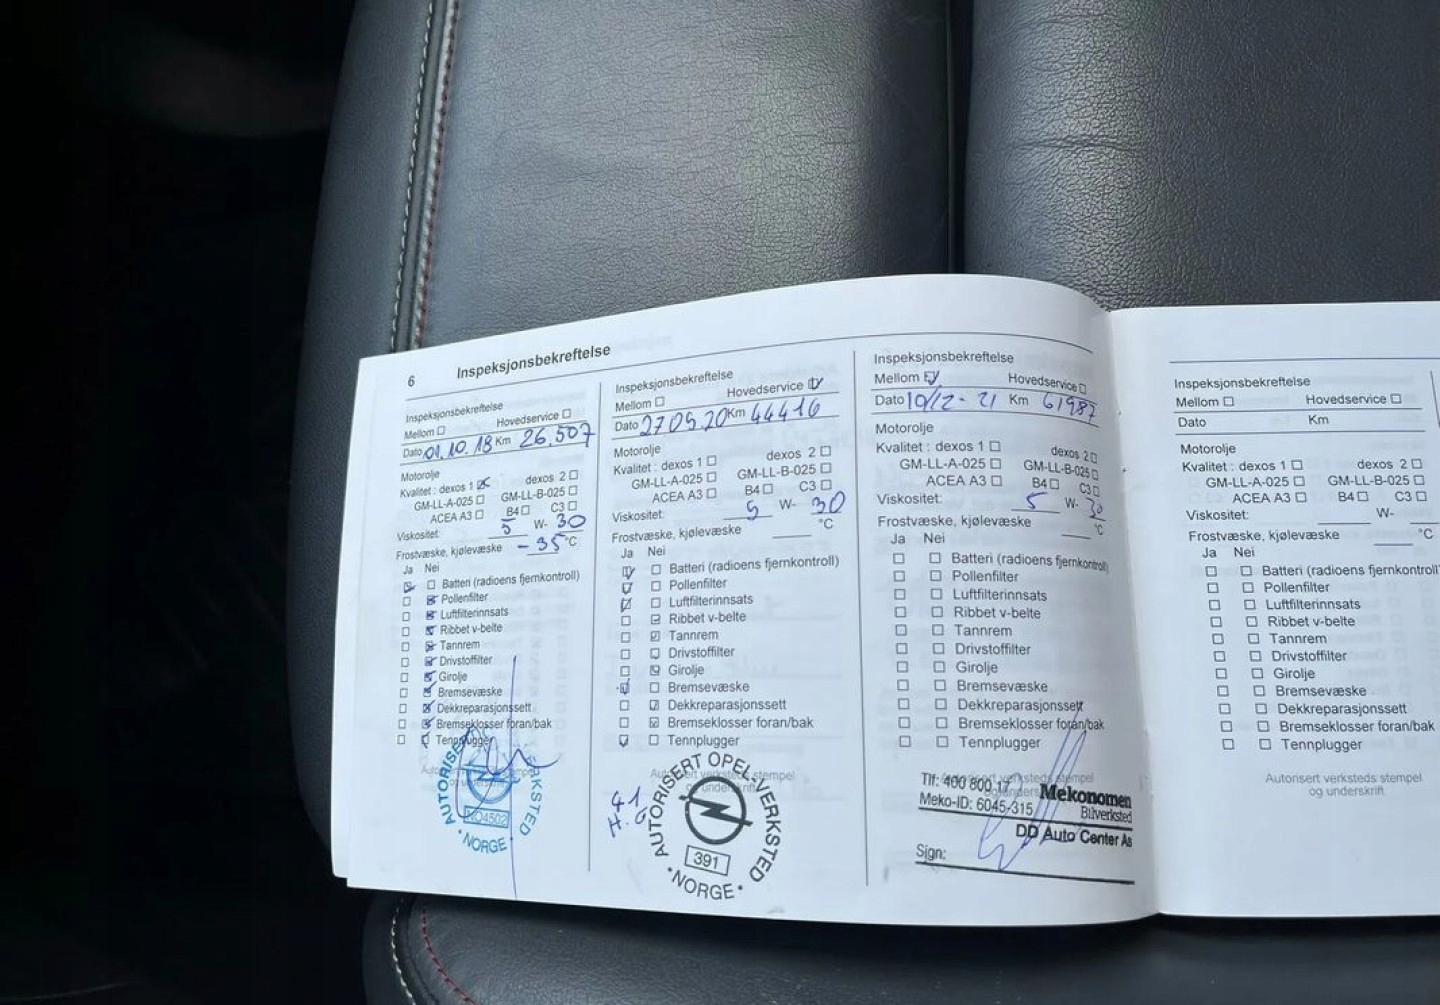 6 Inspeksjonsbekreftelse
Inspeksjonsbekreftelse
Mellom Hovedservice
Dato 01.10.18 Km 26.507
Motorolje
Kvalitet : dexos 1 dexos 2
GM-LL-A-025 GM-LL-B-025
ACEA A3 B4 C3
Viskositet: 5 W- 30
Frostvæske, kjølevæske -35 °C
Ja Nei
Batteri (radioens fjernkontroll)
Pollenfilter
Luftfilterinnsats
Ribbet v-belte
Tannrem
Drivstoffilter
Girolje
Bremsevæske
Dekkreparasjonssett
Bremseklosser foran/bak
Tennplugger
AUTORISERT VERKSTED
NO4502
NORGE
Inspeksjonsbekreftelse
Mellom Hovedservice
Dato 27 05 20 Km 44416
Motorolje
Kvalitet : dexos 1 dexos 2
GM-LL-A-025 GM-LL-B-025
ACEA A3 B4 C3
Viskositet: 5 W- 30
Frostvæske, kjølevæske °C
Ja Nei
Batteri (radioens fjernkontroll)
Pollenfilter
Luftfilterinnsats
Ribbet v-belte
Tannrem
Drivstoffilter
Girolje
Bremsevæske
Dekkreparasjonssett
Bremseklosser foran/bak
Tennplugger
Autorisert verksteds stempel
og underskrift
AUTORISERT OPEL-VERKSTED
391
· NORGE ·
Inspeksjonsbekreftelse
Mellom Hovedservice
Dato 10/12-21 Km 61987
Motorolje
Kvalitet : dexos 1 dexos 2
GM-LL-A-025 GM-LL-B-025
ACEA A3 B4 C3
Viskositet: 5 W- 30
Frostvæske, kjølevæske °C
Ja Nei
Batteri (radioens fjernkontroll)
Pollenfilter
Luftfilterinnsats
Ribbet v-belte
Tannrem
Drivstoffilter
Girolje
Bremsevæske
Dekkreparasjonssett
Bremseklosser foran/bak
Tennplugger
Tlf: 400 800 17 Mekonomen
Meko-ID: 6045-315 Bilverksted
DD Auto Center As
Sign:
Inspeksjonsbekreftelse
Mellom Hovedservice
Dato Km
Motorolje
Kvalitet : dexos 1 dexos 2
GM-LL-A-025 GM-LL-B-025
ACEA A3 B4 C3
Viskositet: W-
Frostvæske, kjølevæske °C
Ja Nei
Batteri (radioens fjernkontroll
Pollenfilter
Luftfilterinnsats
Ribbet v-belte
Tannrem
Drivstoffilter
Girolje
Bremsevæske
Dekkreparasjonssett
Bremseklosser foran/bak
Tennplugger
Autorisert verksteds stempel
og underskrift